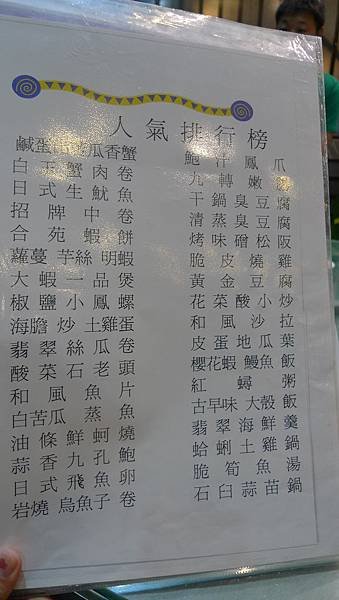 人氣排行榜
鹹蛋瓜香蟹
白玉蟹肉卷
日式生魷魚
招牌中卷
合苑蝦餅
蘿蔓芋絲明蝦
大蝦一品煲
椒鹽小鳳螺
海膽炒土雞蛋
翡翠絲瓜卷
酸菜石老頭
和風魚片
白苦瓜蒸魚
油條鮮蚵燒
蒜香九孔鮑
日式飛魚卵
岩燒烏魚子卷
鮑汁鳳爪
九轉嫩腸
干鍋臭豆腐
清蒸臭豆腐
烤味磳松阪
脆皮燒雞
黃金豆腐
花菜酸小炒
和風沙拉
皮蛋地瓜葉
櫻花蝦鰻魚飯
紅蟳粥
古早味大殼飯
翡翠海鮮羹
蛤蜊土雞鍋
脆筍魚湯
石臼蒜苗鍋